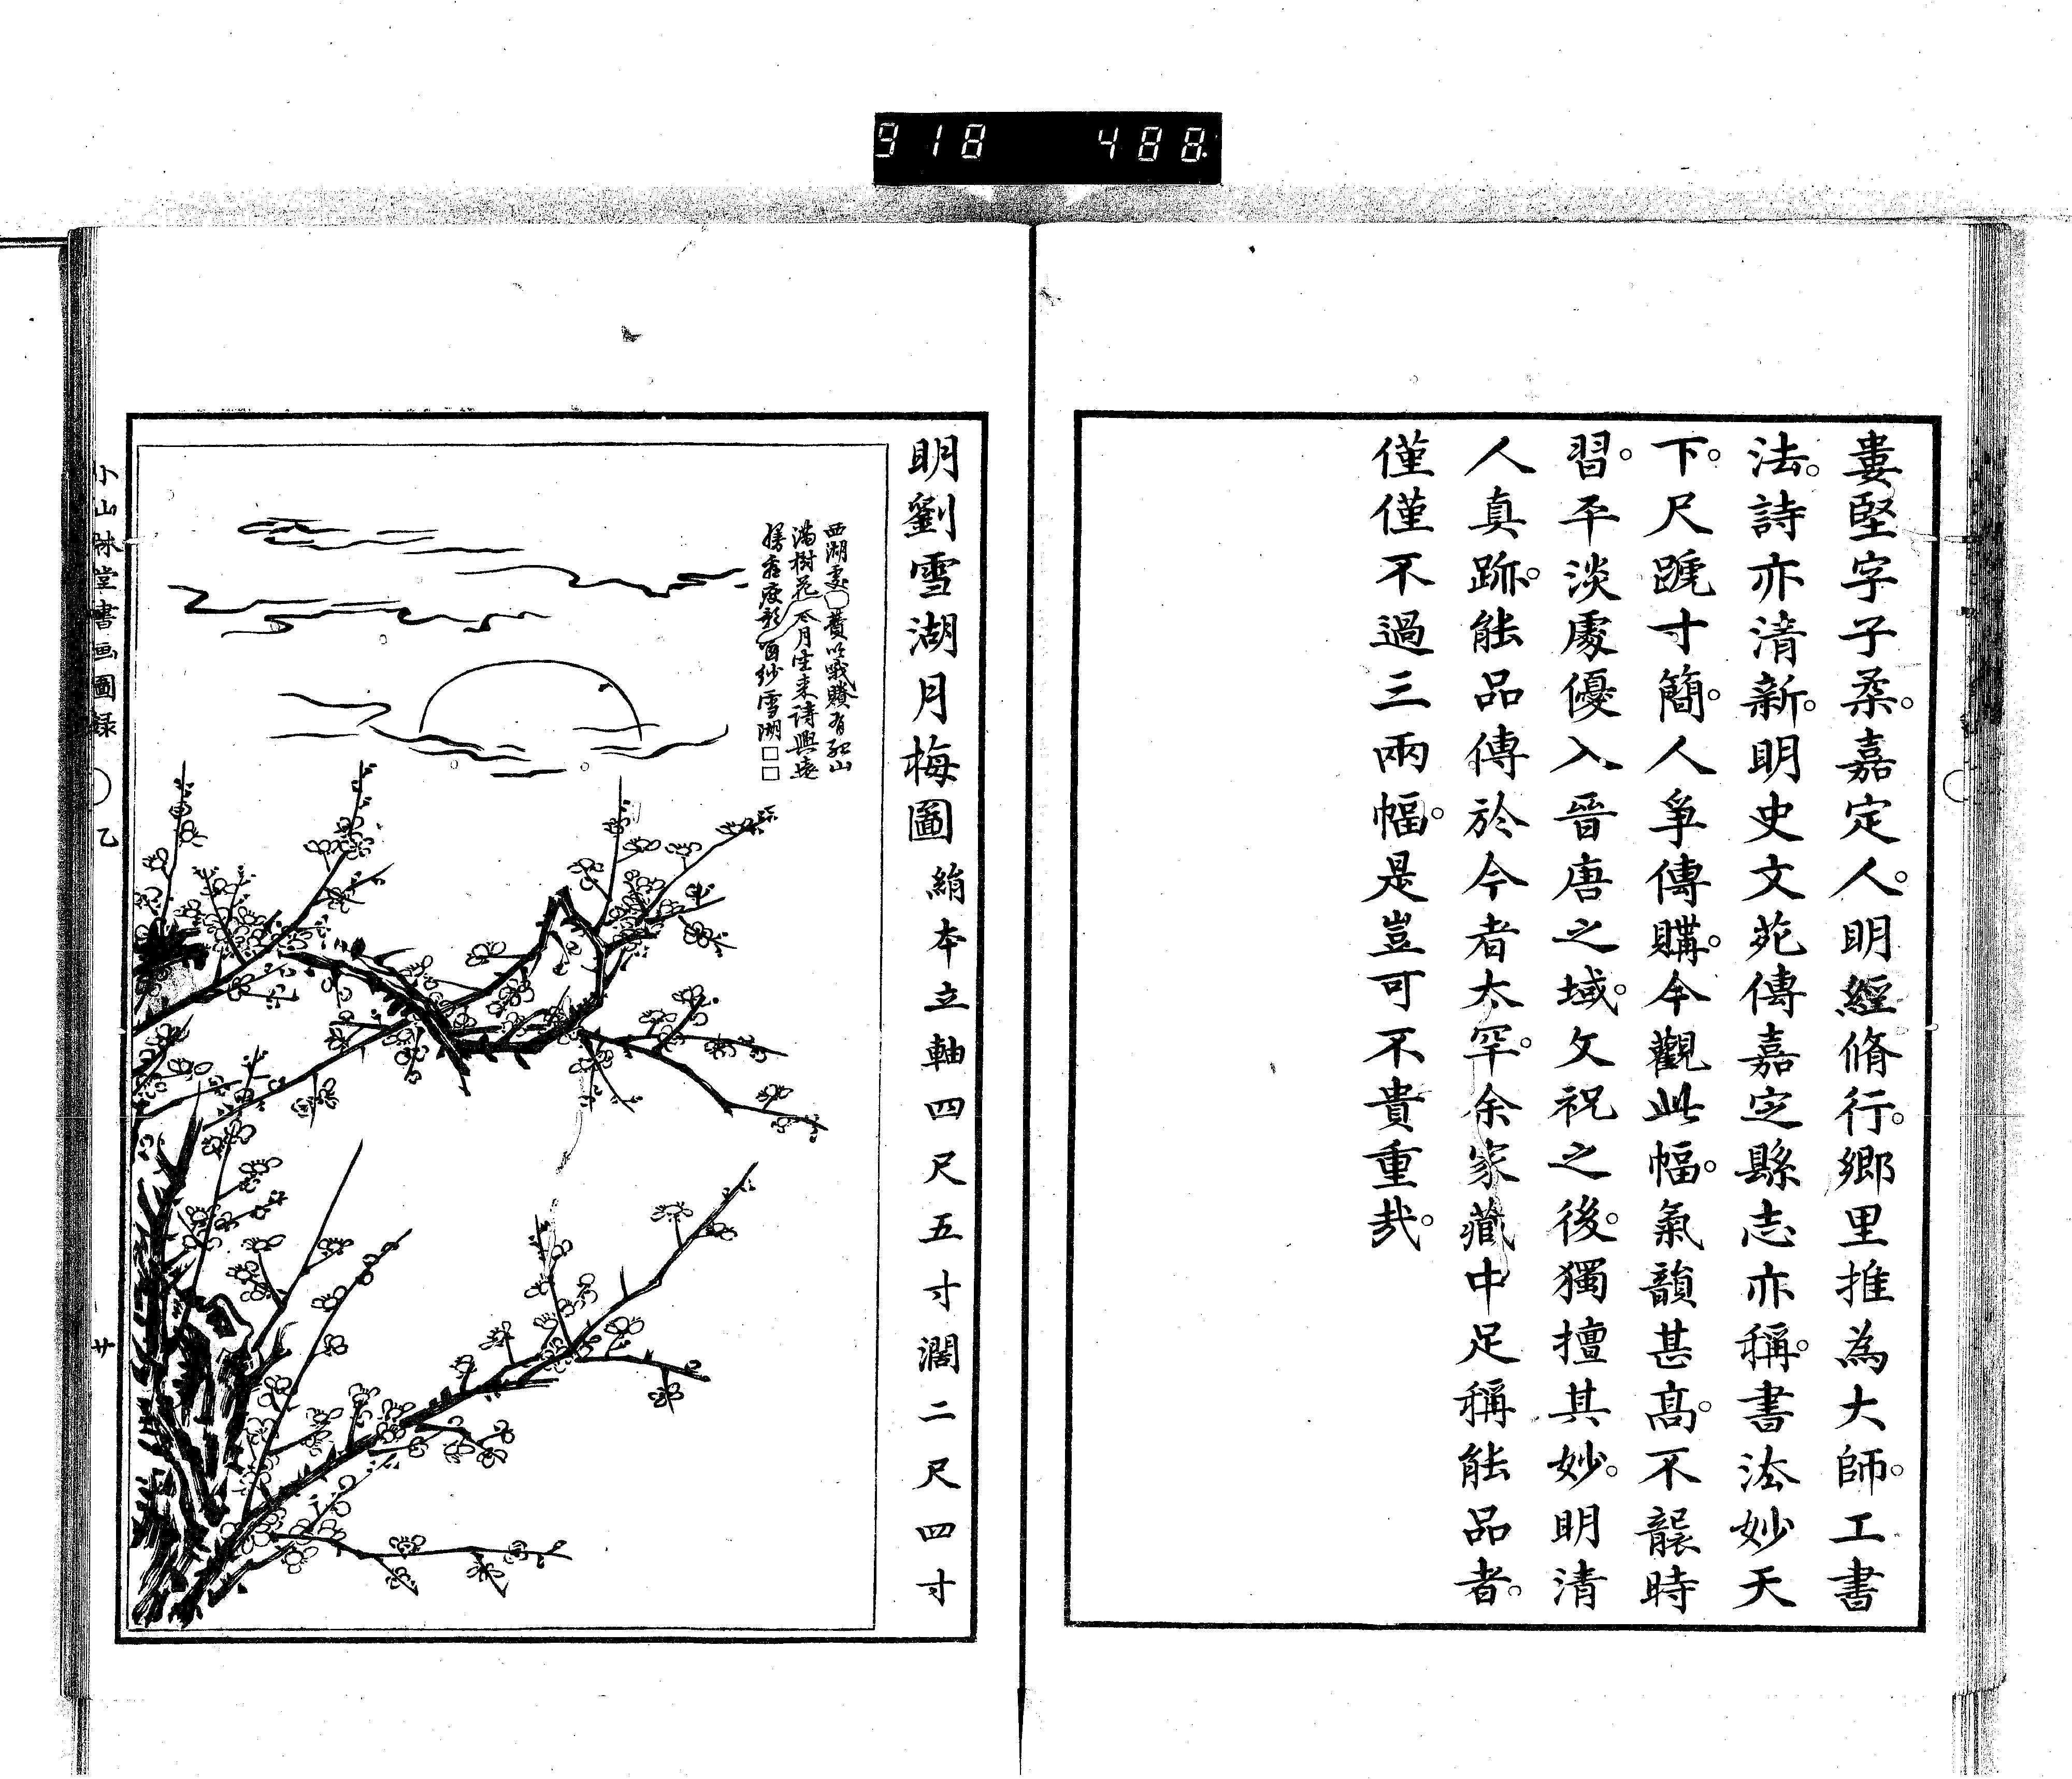 918 488
婁堅字子柔。嘉定人。明經脩行。鄉里推為大師。工書
法。詩亦清新。明史文苑傳嘉定縣志亦稱。書法妙天
下。尺蹏寸簡。人爭傳購。今觀此幅。氣韻甚高。不襲時
習。平淡處優入晉唐之域。文祝之後。獨擅其妙。明清
人真跡。能品傳於今者太罕。余家藏中足稱能品者。
僅僅不過三兩幅。是豈可不貴重哉。
明劉雪湖月梅圖 絹本立軸四尺五寸濶二尺四寸
西湖處
滿樹花 月生来詩興
雪湖□□
小山林堂書画圖録 乙 廿